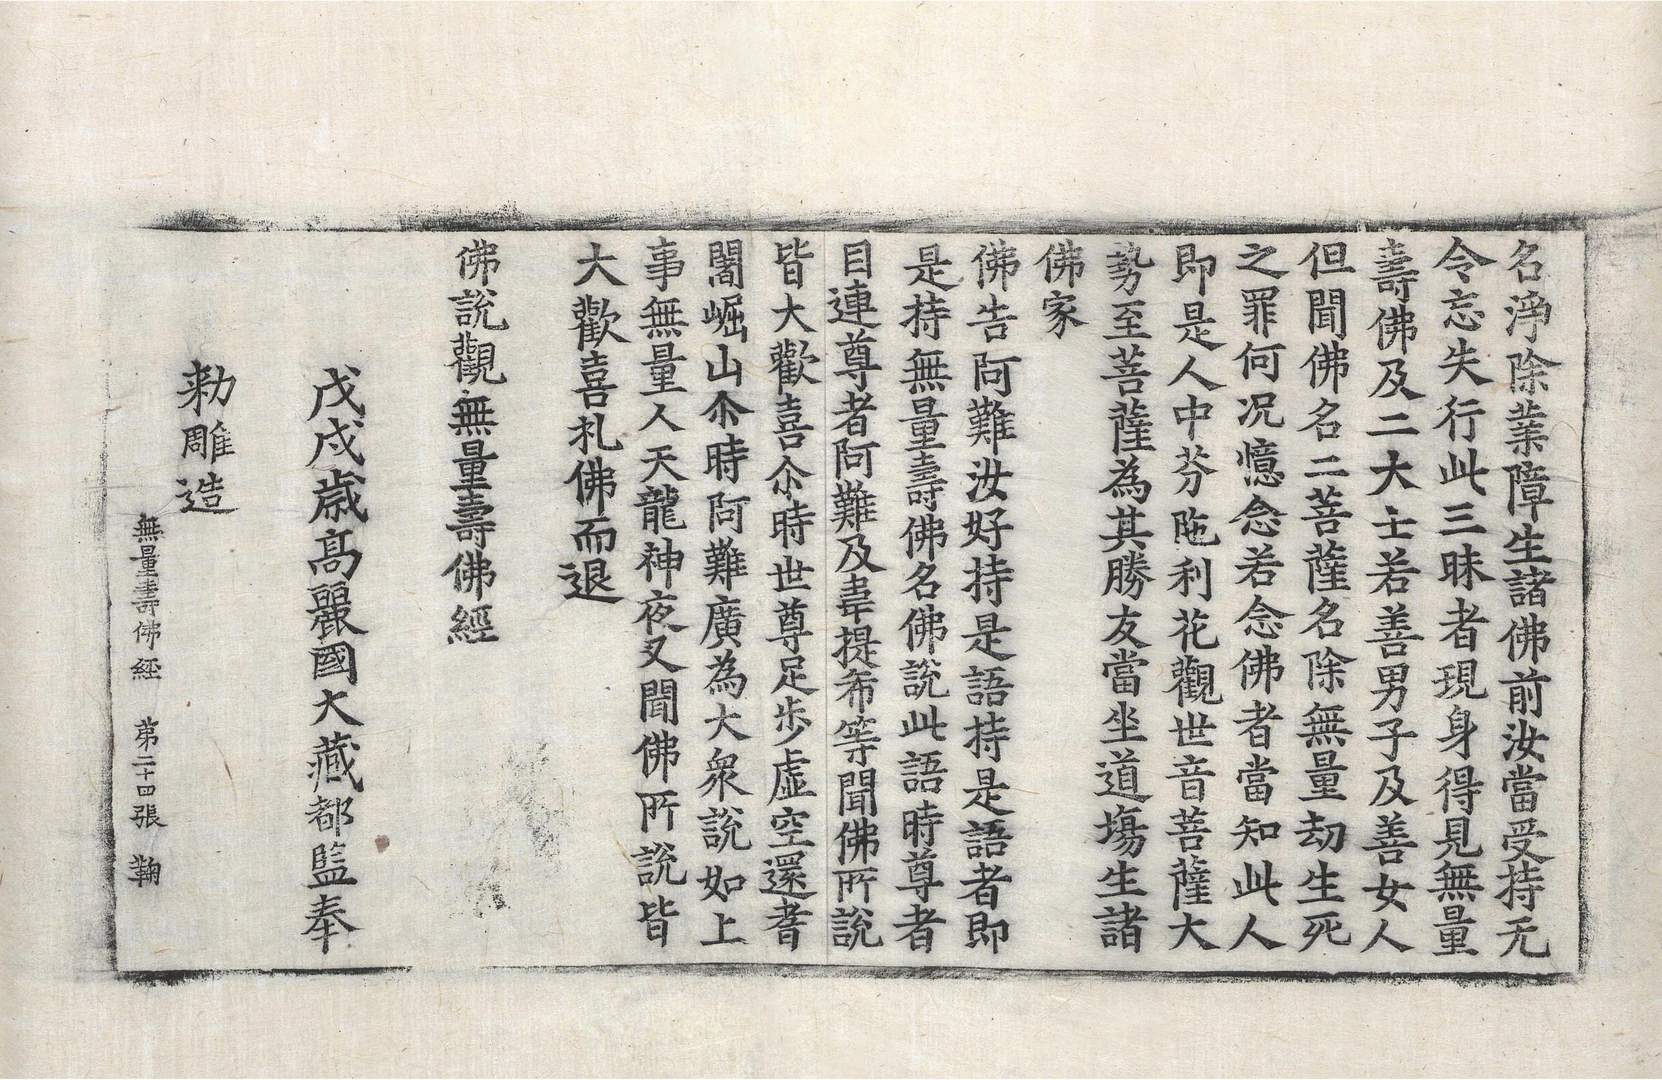 名淨除業障生諸佛前汝當受持无
令忘失行此三昧者現身得見無量
壽佛及二大士若善男子及善女人
但聞佛名二菩薩名除無量劫生死
之罪何況憶念若念佛者當知此人
即是人中芬陁利花觀世音菩薩大
勢至菩薩為其勝友當坐道場生諸
佛家
佛告阿難汝好持是語持是語者即
是持無量壽佛名佛說此語時尊者
目連尊者阿難及韋提希等聞佛所說
皆大歡喜尒時世尊足步虛空還耆
闍崛山尒時阿難廣為大衆說如上
事無量人天龍神夜叉聞佛所說皆
大歡喜礼佛而退
佛說觀無量壽佛經
戊戌歲高麗國大藏都監奉
勑雕造
無量壽佛經 第二十四張 鞠